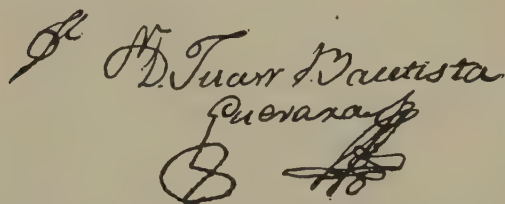 D. Juan Bautista
Guevara